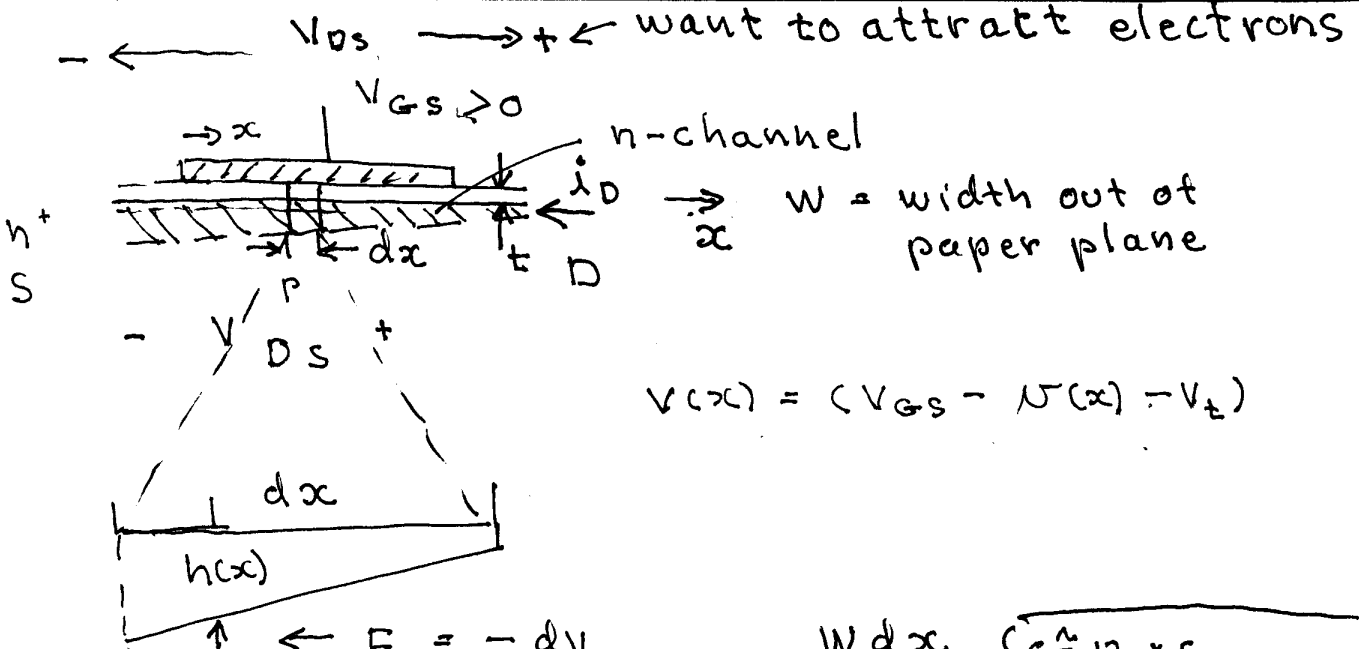 - ← V_DS → + ← want to attract electrons
V_GS > 0
→ x
n-channel
i_D → x W = width out of
paper plane
n+
S
dx
t D
P
- V_DS +
V(x) = (V_GS - v(x) - V_t)
dx
h(x)
← E = - dv W dx